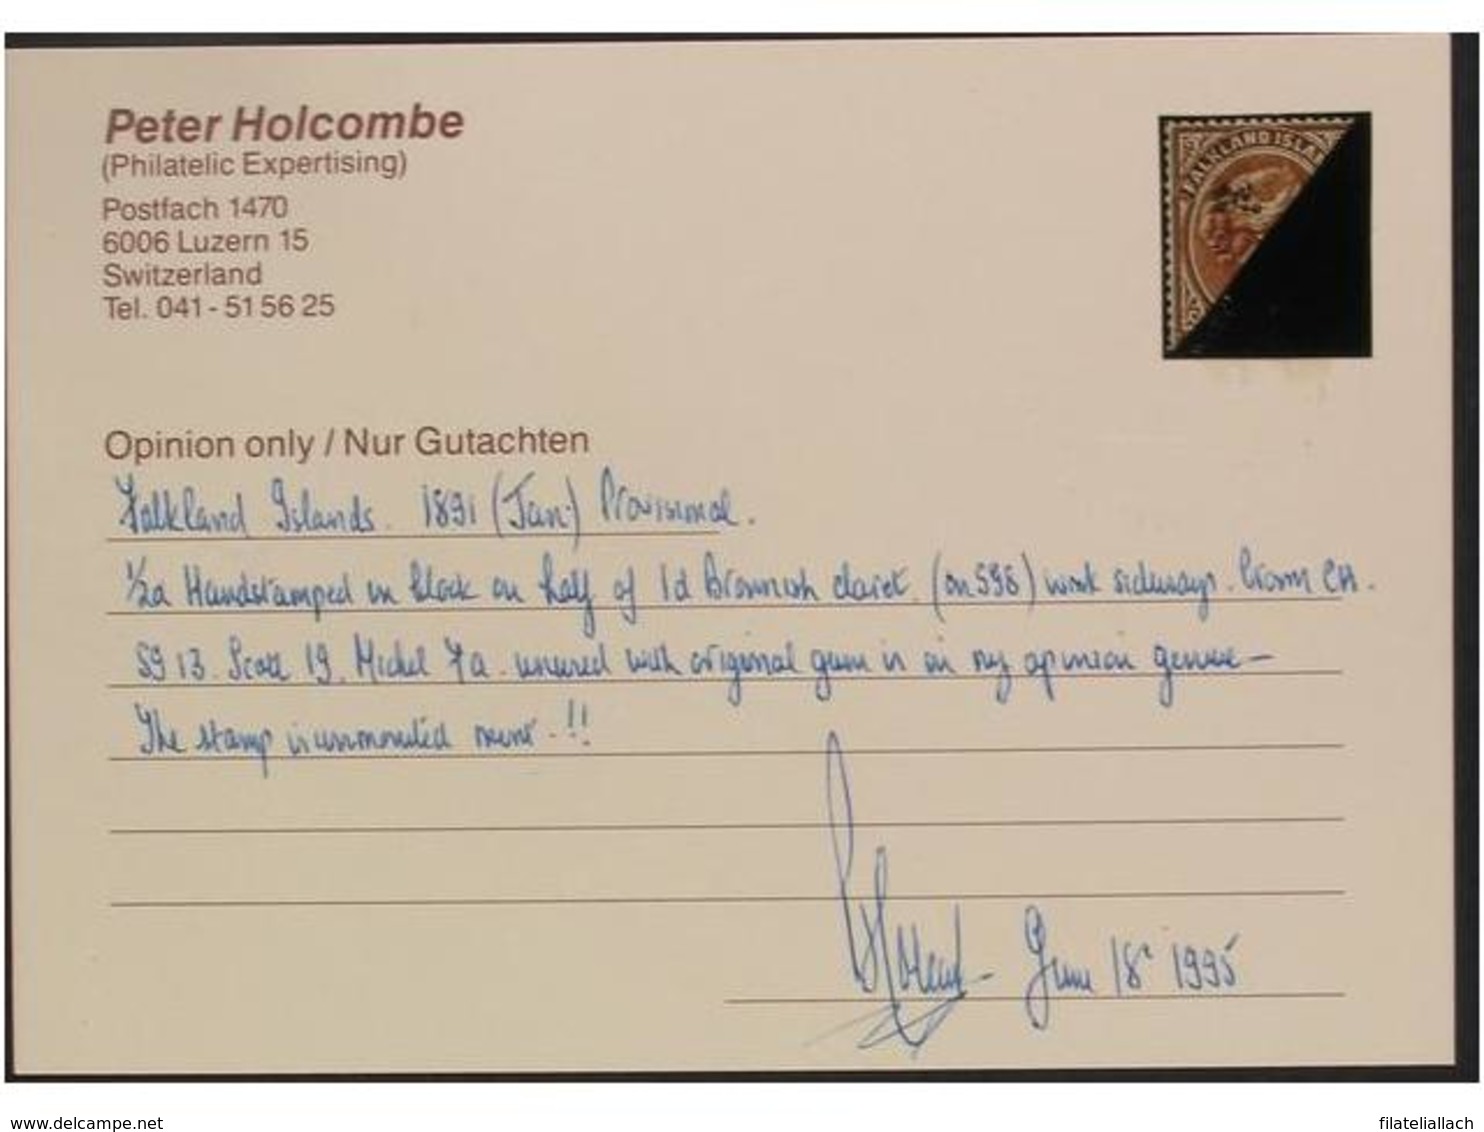 Peter Holcombe
(Philatelic Expertising)
Postfach 1470
6006 Luzern 15
Switzerland
Tel. 041 - 51 56 25
FALKLAND ISLA
Opinion only / Nur Gutachten
Falkland Islands. 1891 (Jan.) Provisional.
½d Handstamped in black on half of 1d Brownish claret. (on SG8) wmk sideways. Crown CA.
SG 13. Scott 19. Michel 7a. unused with original gum is in my opinion genuine —
The stamp is unmounted mint. !!
June 18 1995
www.delcampe.net
filateliallach